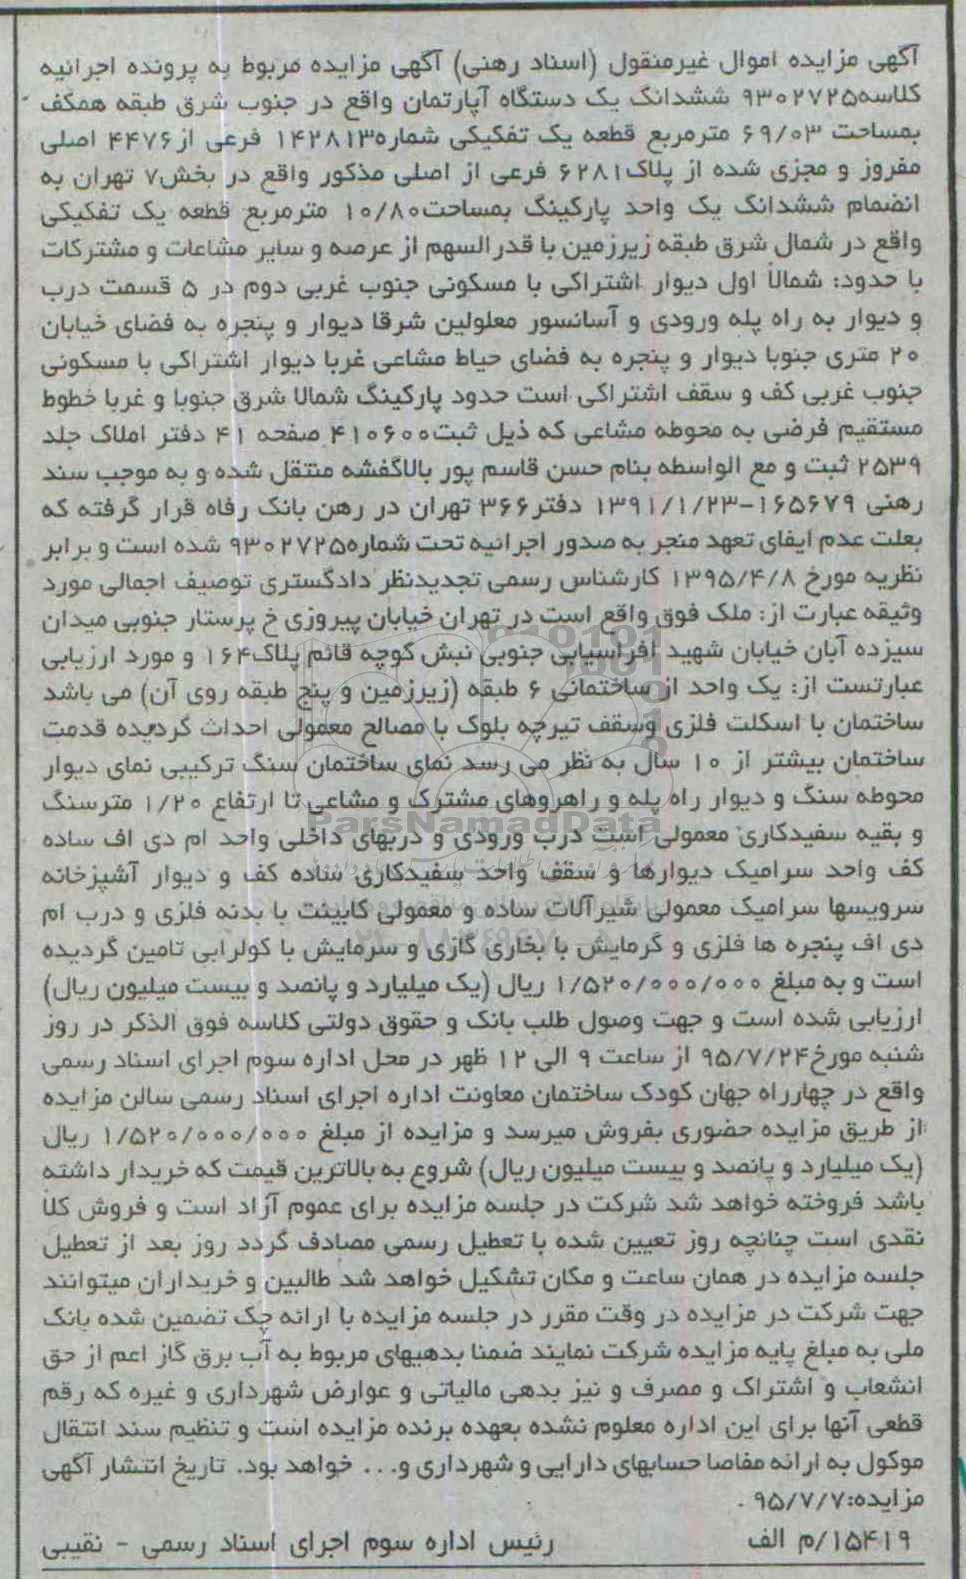 آگهی مزایده اموال غیرمنقول (اسناد رهنی) آگهی مزایده مربوط به پرونده اجرائیه
کلاسه۹۳۰۲۷۲۵ ششدانگ یک دستگاه آپارتمان واقع در جنوب شرق طبقه همکف
بمساحت ۶۹/۰۳ مترمربع قطعه یک تفکیکی شماره۱۴۲۸۱۳ فرعی از۴۴۷۶ اصلی
مفروز و مجزی شده از پلاک۶۲۸۱ فرعی از اصلی مذکور واقع در بخش۷ تهران به
انضمام ششدانگ یک واحد پارکینگ بمساحت۱۰/۸۰ مترمربع قطعه یک تفکیکی
واقع در شمال شرق طبقه زیرزمین با قدرالسهم از عرصه و سایر مشاعات و مشترکات
با حدود: شمالا اول دیوار اشتراکی با مسکونی جنوب غربی دوم در ۵ قسمت درب
و دیوار به راه پله ورودی و آسانسور معلولین شرقا دیوار و پنجره به فضای خیابان
۲۰ متری جنوبا دیوار و پنجره به فضای حیاط مشاعی غربا دیوار اشتراکی با مسکونی
جنوب غربی کف و سقف اشتراکی است حدود پارکینگ شمالا شرق جنوبا و غربا خطوط
مستقیم فرضی به محوطه مشاعی که ذیل ثبت۴۱۰۶۰۰ صفحه ۴۱ دفتر املاک جلد
۲۵۳۹ ثبت و مع الواسطه بنام حسن قاسم پور بالاگفشه منتقل شده و به موجب سند
رهنی ۱۶۵۶۷۹-۱۳۹۱/۱/۲۳ دفتر۳۶۶ تهران در رهن بانک رفاه قرار گرفته که
بعلت عدم ایفای تعهد منجر به صدور اجرائیه تحت شماره۹۳۰۲۷۲۵ شده است و برابر
نظریه مورخ ۱۳۹۵/۴/۸ کارشناس رسمی تجدیدنظر دادگستری توصیف اجمالی مورد
وثیقه عبارت از: ملک فوق واقع است در تهران خیابان پیروزی خ پرستار جنوبی میدان
سیزده آبان خیابان شهید افراسیابی جنوبی نبش کوچه قائم پلاک۱۶۴ و مورد ارزیابی
عبارتست از: یک واحد از ساختمانی ۶ طبقه (زیرزمین و پنج طبقه روی آن) می باشد
ساختمان با اسکلت فلزی وسقف تیرچه بلوک با مصالح معمولی احداث گردیده قدمت
ساختمان بیشتر از ۱۰ سال به نظر می رسد نمای ساختمان سنگ ترکیبی نمای دیوار
محوطه سنگ و دیوار راه پله و راهروهای مشترک و مشاعی تا ارتفاع ۱/۲۰ مترسنگ
و بقیه سفیدکاری معمولی است درب ورودی و دربهای داخلی واحد ام دی اف ساده
کف واحد سرامیک دیوارها و سقف واحد سفیدکاری ساده کف و دیوار آشپزخانه
سرویسها سرامیک معمولی شیرآلات ساده و معمولی کابینت با بدنه فلزی و درب ام
دی اف پنجره ها فلزی و گرمایش با بخاری گازی و سرمایش با کولرابی تامین گردیده
است و به مبلغ ۱/۵۲۰/۰۰۰/۰۰۰ ریال (یک میلیارد و پانصد و بیست میلیون ریال)
ارزیابی شده است و جهت وصول طلب بانک و حقوق دولتی کلاسه فوق الذکر در روز
شنبه مورخ۹۵/۷/۲۴ از ساعت ۹ الی ۱۲ ظهر در محل اداره سوم اجرای اسناد رسمی
واقع در چهارراه جهان کودک ساختمان معاونت اداره اجرای اسناد رسمی سالن مزایده
از طریق مزایده حضوری بفروش میرسد و مزایده از مبلغ ۱/۵۲۰/۰۰۰/۰۰۰ ریال
(یک میلیارد و پانصد و بیست میلیون ریال) شروع به بالاترین قیمت که خریدار داشته
باشد فروخته خواهد شد شرکت در جلسه مزایده برای عموم آزاد است و فروش کلا
نقدی است چنانچه روز تعیین شده با تعطیل رسمی مصادف گردد روز بعد از تعطیل
جلسه مزایده در همان ساعت و مکان تشکیل خواهد شد طالبین و خریداران میتوانند
جهت شرکت در مزایده در وقت مقرر در جلسه مزایده با ارائه چک تضمین شده بانک
ملی به مبلغ پایه مزایده شرکت نمایند ضمنا بدهیهای مربوط به آب برق گاز اعم از حق
انشعاب و اشتراک و مصرف و نیز بدهی مالیاتی و عوارض شهرداری و غیره که رقم
قطعی آنها برای این اداره معلوم نشده بعهده برنده مزایده است و تنظیم سند انتقال
موکول به ارائه مفاصا حسابهای دارایی و شهرداری و... خواهد بود. تاریخ انتشار آگهی
مزایده:۹۵/۷/۷ .
۱۵۴۱۹/م الف رئیس اداره سوم اجرای اسناد رسمی - نقیبی
ParsNamadData